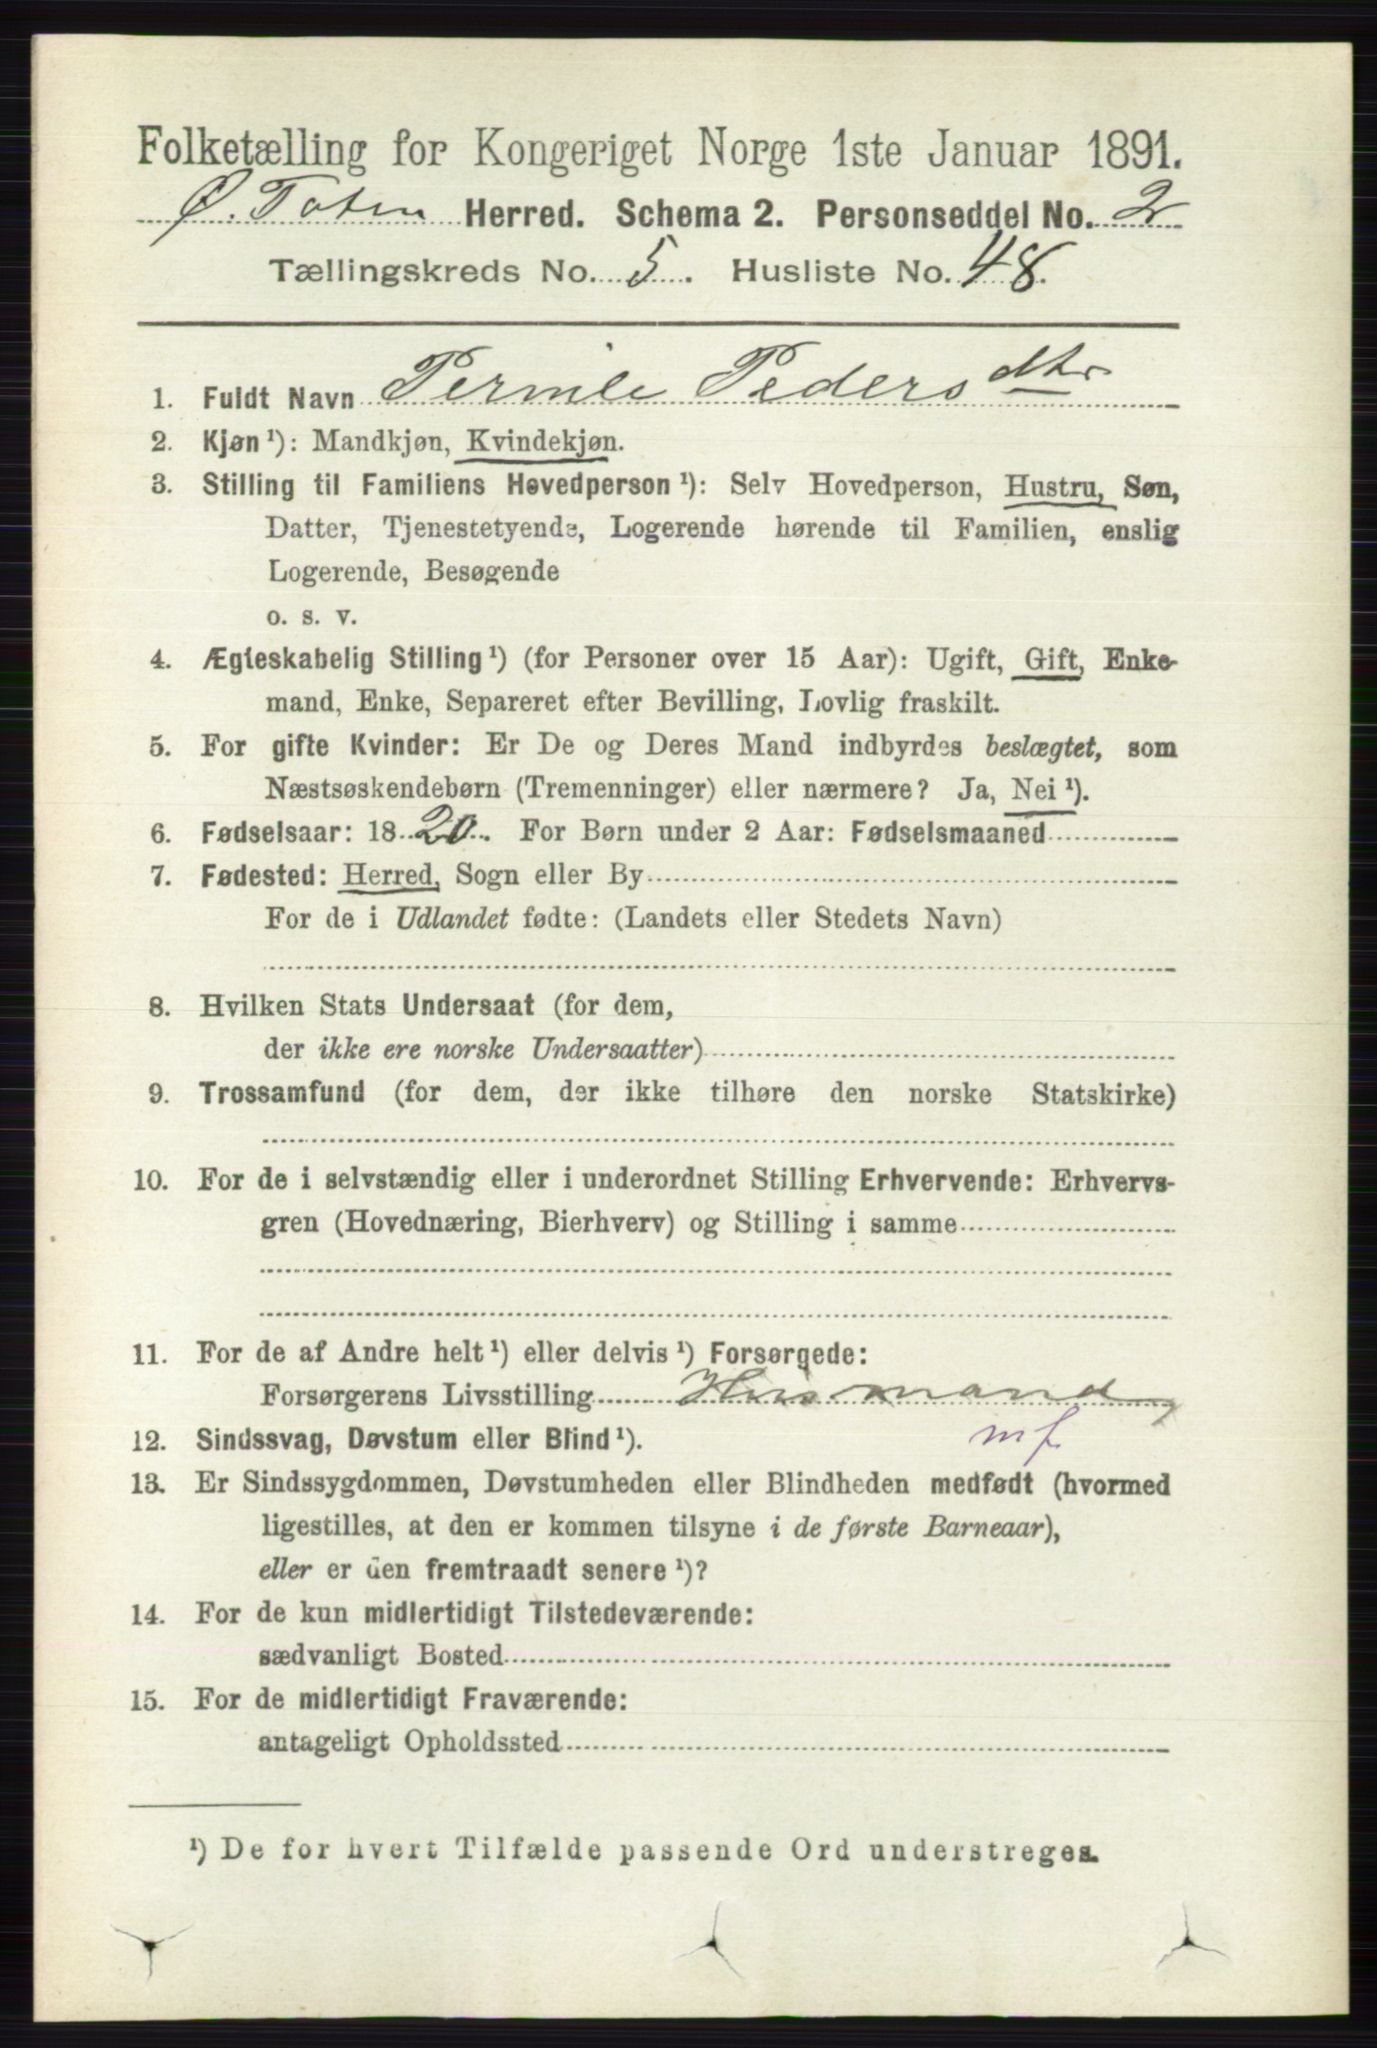 Folketælling for Kongeriget Norge 1ste Januar 1891.
Ø. Toten Herred. Schema 2. Personseddel No. 2
Tællingskreds No. 5. Husliste No. 48.
1. Fuldt Navn Pernile Pedersdtr
2. Kjøn ¹): Mandkjøn, Kvindekjøn.
3. Stilling til Familiens Hovedperson ¹): Selv Hovedperson, Hustru, Søn,
Datter, Tjenestetyende, Logerende hørende til Familien, enslig
Logerende, Besøgende
o. s. v.
4. Ægteskabelig Stilling ¹) (for Personer over 15 Aar): Ugift, Gift, Enke-
mand, Enke, Separeret efter Bevilling, Lovlig fraskilt.
5. For gifte Kvinder: Er De og Deres Mand indbyrdes beslægtet, som
Næstsøskendebørn (Tremenninger) eller nærmere? Ja, Nei ¹).
6. Fødselsaar: 1820. For Børn under 2 Aar: Fødselsmaaned
7. Fødested: Herred, Sogn eller By
For de i Udlandet fødte: (Landets eller Stedets Navn)
8. Hvilken Stats Undersaat (for dem,
der ikke ere norske Undersaatter)
9. Trossamfund (for dem, der ikke tilhøre den norske Statskirke)
10. For de i selvstændig eller i underordnet Stilling Erhvervende: Erhvervs-
gren (Hovednæring, Bierhverv) og Stilling i samme
11. For de af Andre helt ¹) eller delvis ¹) Forsørgede:
Forsørgerens Livsstilling Husmand
12. Sindssvag, Døvstum eller Blind ¹). mf
13. Er Sindssygdommen, Døvstumheden eller Blindheden medfødt (hvormed
ligestilles, at den er kommen tilsyne i de første Barneaar),
eller er den fremtraadt senere ¹)?
14. For de kun midlertidigt Tilstedeværende:
sædvanligt Bosted
15. For de midlertidigt Fraværende:
antageligt Opholdssted
¹) De for hvert Tilfælde passende Ord understreges.